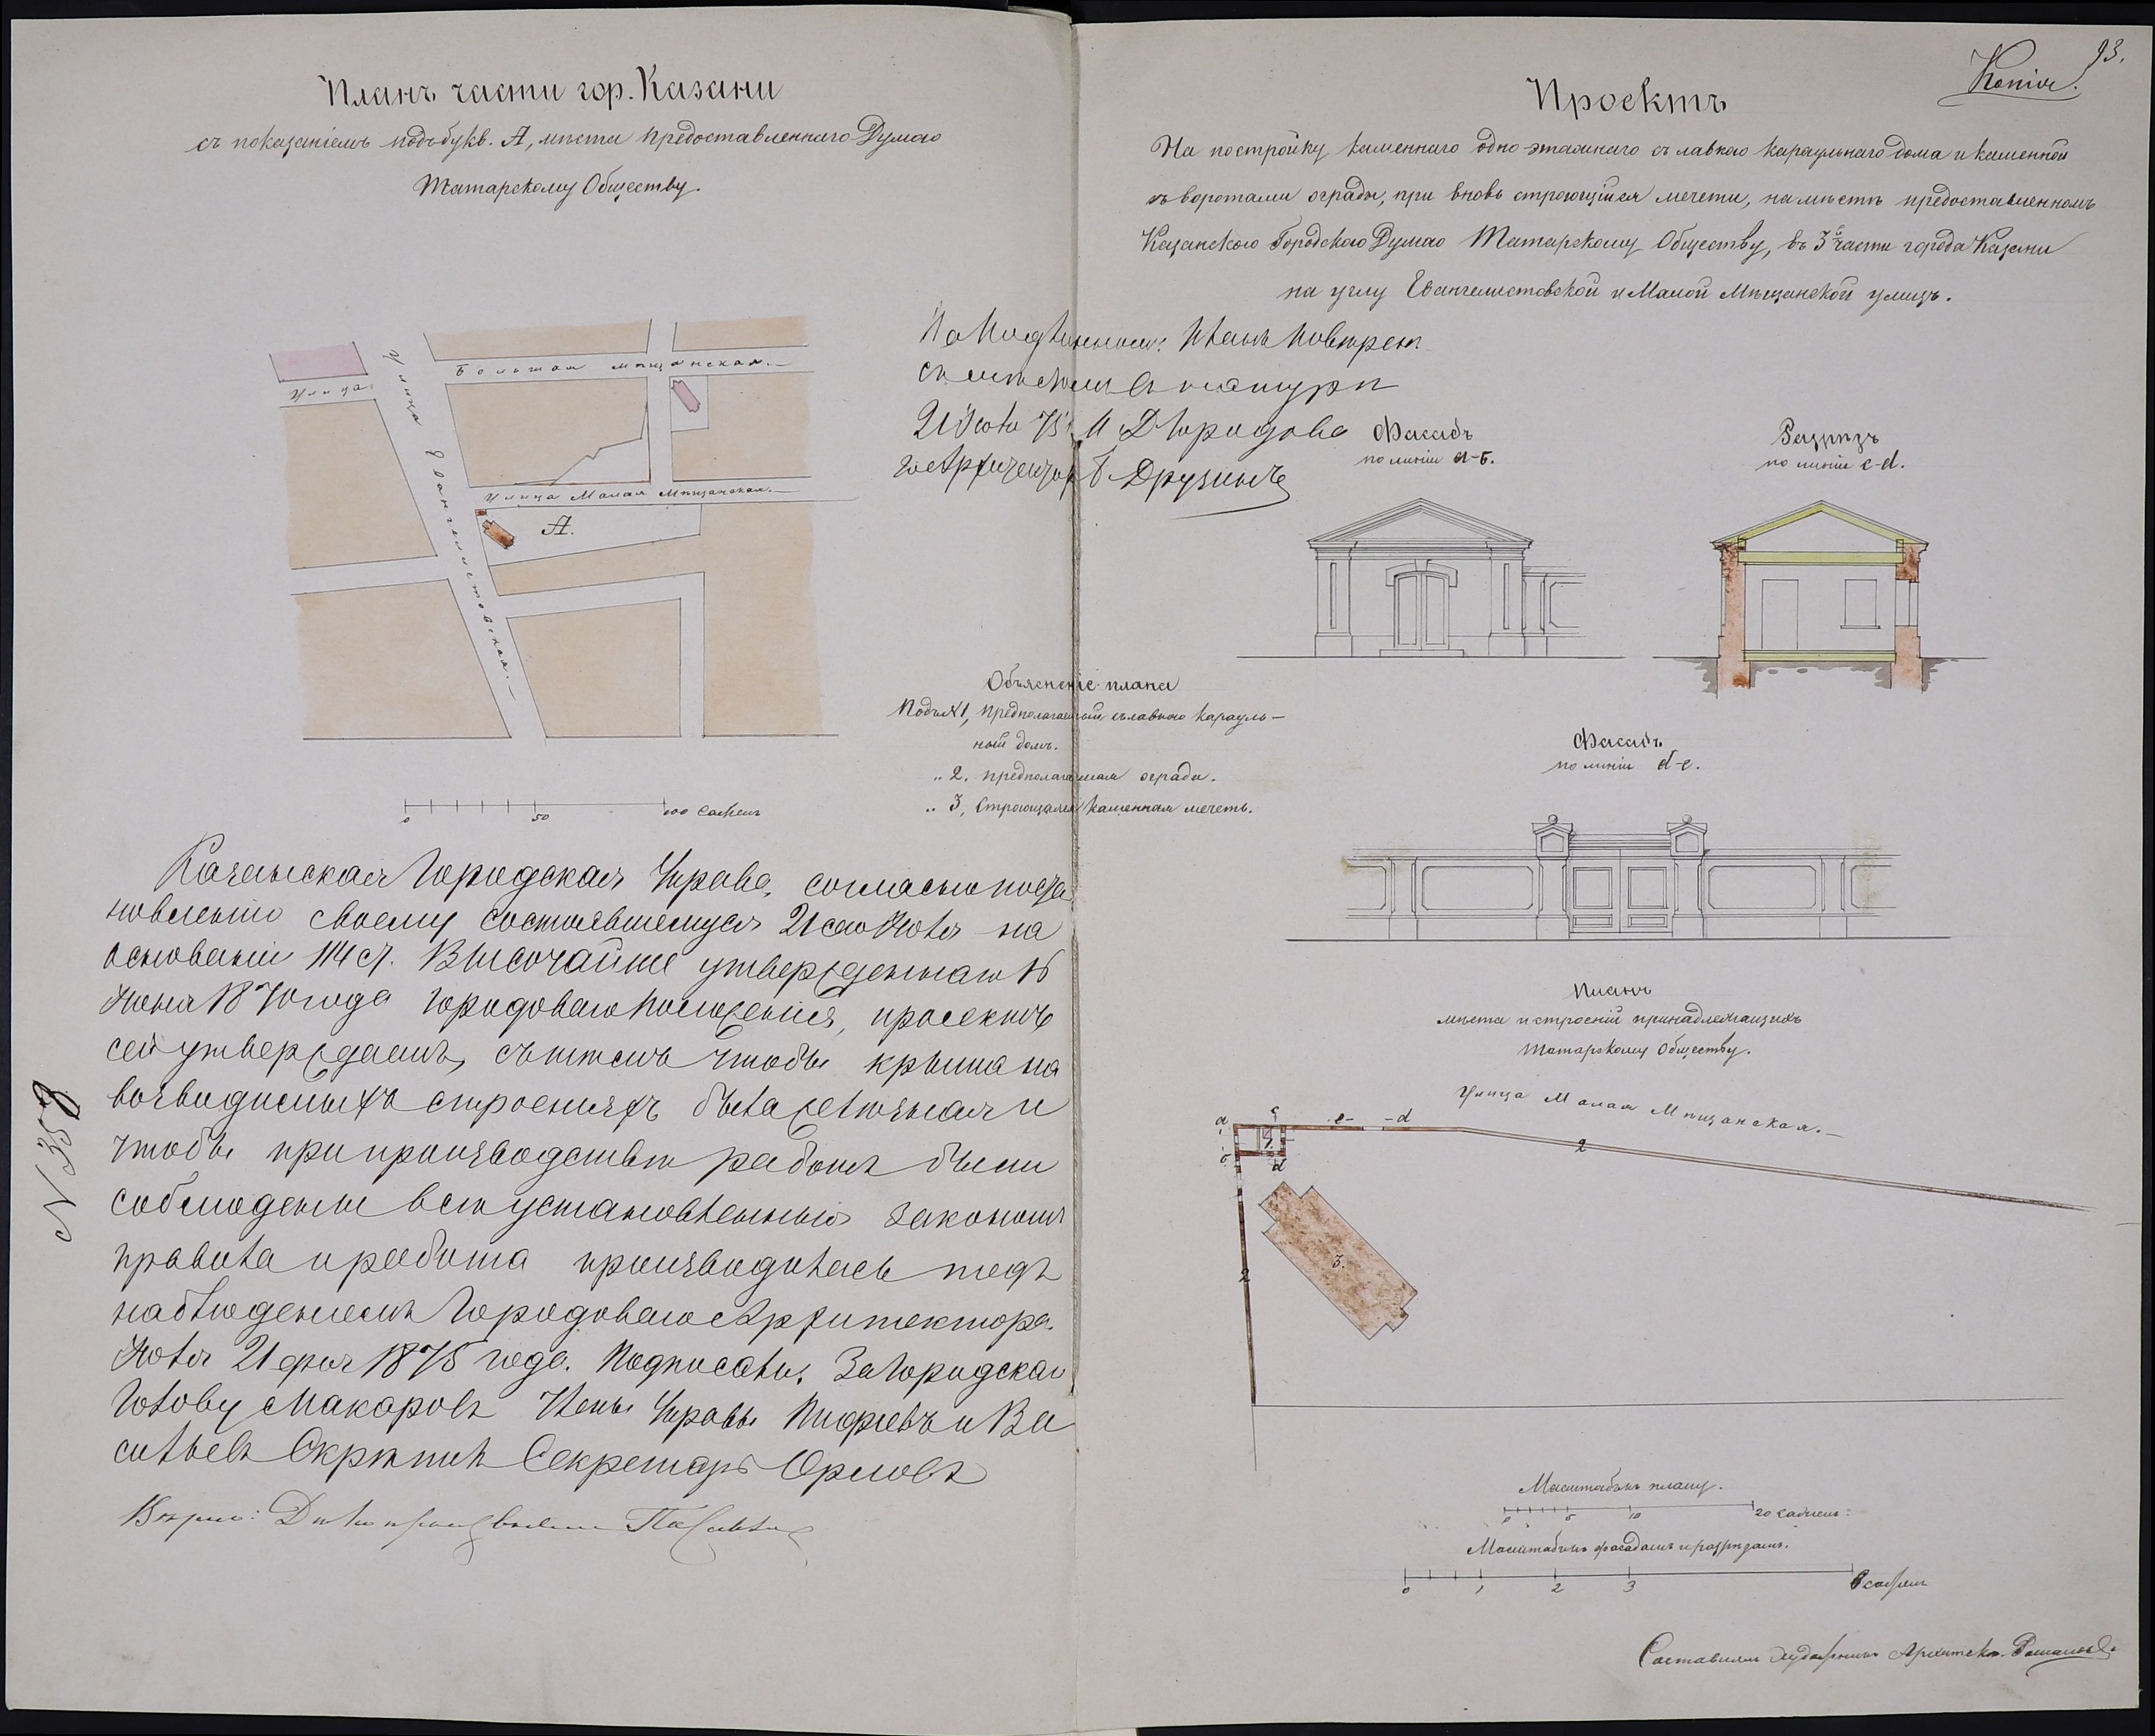 Планъ части гор. Казани
съ показаніемъ подъ букв. А, мѣста предоставленнаго Думою
Татарскому Обществу.
Улица
Улица Евангелистовская.
Большая Мѣщанская.
Улица Малая Мѣщанская.
А.
0 50 100 саженъ
Казанская Городская Управа, согласно поста
новленію своему состоявшемуся 21 сего Іюля на
основаніи 114 ст. Высочайше утвержденнаго 16
Іюня 1870 года Городоваго Положенія, проектъ
сей утверждаетъ, съ тѣмъ чтобы крыша на
возводимыхъ строеніяхъ была желѣзная и
чтобы при производствѣ работъ были
соблюдены всѣ установленныя закономъ
правила и работа производилась подъ
наблюденіемъ Городоваго Архитектора.
Іюля 21 дня 1875 года. Подписали: За Городскаго
Голову Макаровъ Члены Управы и Ва
сильевъ Скрѣпилъ Секретарь Орловъ
Вѣрно: Дѣлопроизводитель
N 358
93.
Копія.
Проектъ
На постройку каменнаго одно-этажнаго съ лавкою караульнаго дома и каменной
съ воротами ограды, при вновь строющійся мечети, на мѣстѣ предоставленномъ
Казанскою Городскою Думою Татарскому Обществу, въ 3й части города Казани
на углу Евангелистовской и Малой Мѣщанской улицъ.
На подлинномъ: Планъ повѣренъ
съ мѣстомъ въ натурѣ
21 Іюля 75 И. Д. Городова
го Архитектора П. Друзинъ
Фасадъ
по линіи а-б.
Разрѣзъ
по линіи c-d.
Объясненіе плана
Подъ N 1, предполагаемый съ лавкою карауль-
ный домъ.
„ 2, предполагаемая ограда.
„ 3, Строющаяся каменная мечеть.
Фасадъ
по линіи d-e.
Планъ
мѣста и строеній принадлежащихъ
Татарскому Обществу.
Улица Малая Мѣщанская.
a c e d
б 1. d
2
2
3.
Масштабъ плану.
0 5 10 20 саженъ:
Масштабъ фасадамъ и разрѣзамъ.
0 1 2 3 6 саженъ
Составилъ Художникъ Архитект. Романовъ